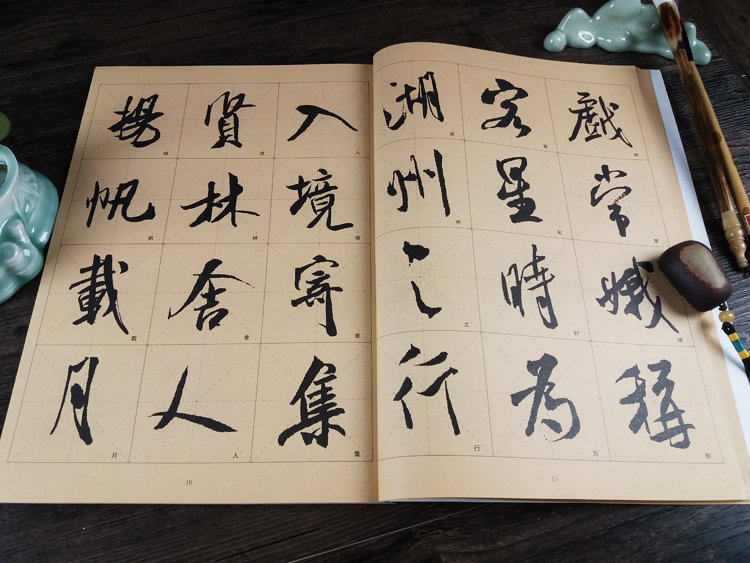 戲常娥稱
客星時為
湖州之行
15
入境寄集
賢林舍人
揚帆載月
16